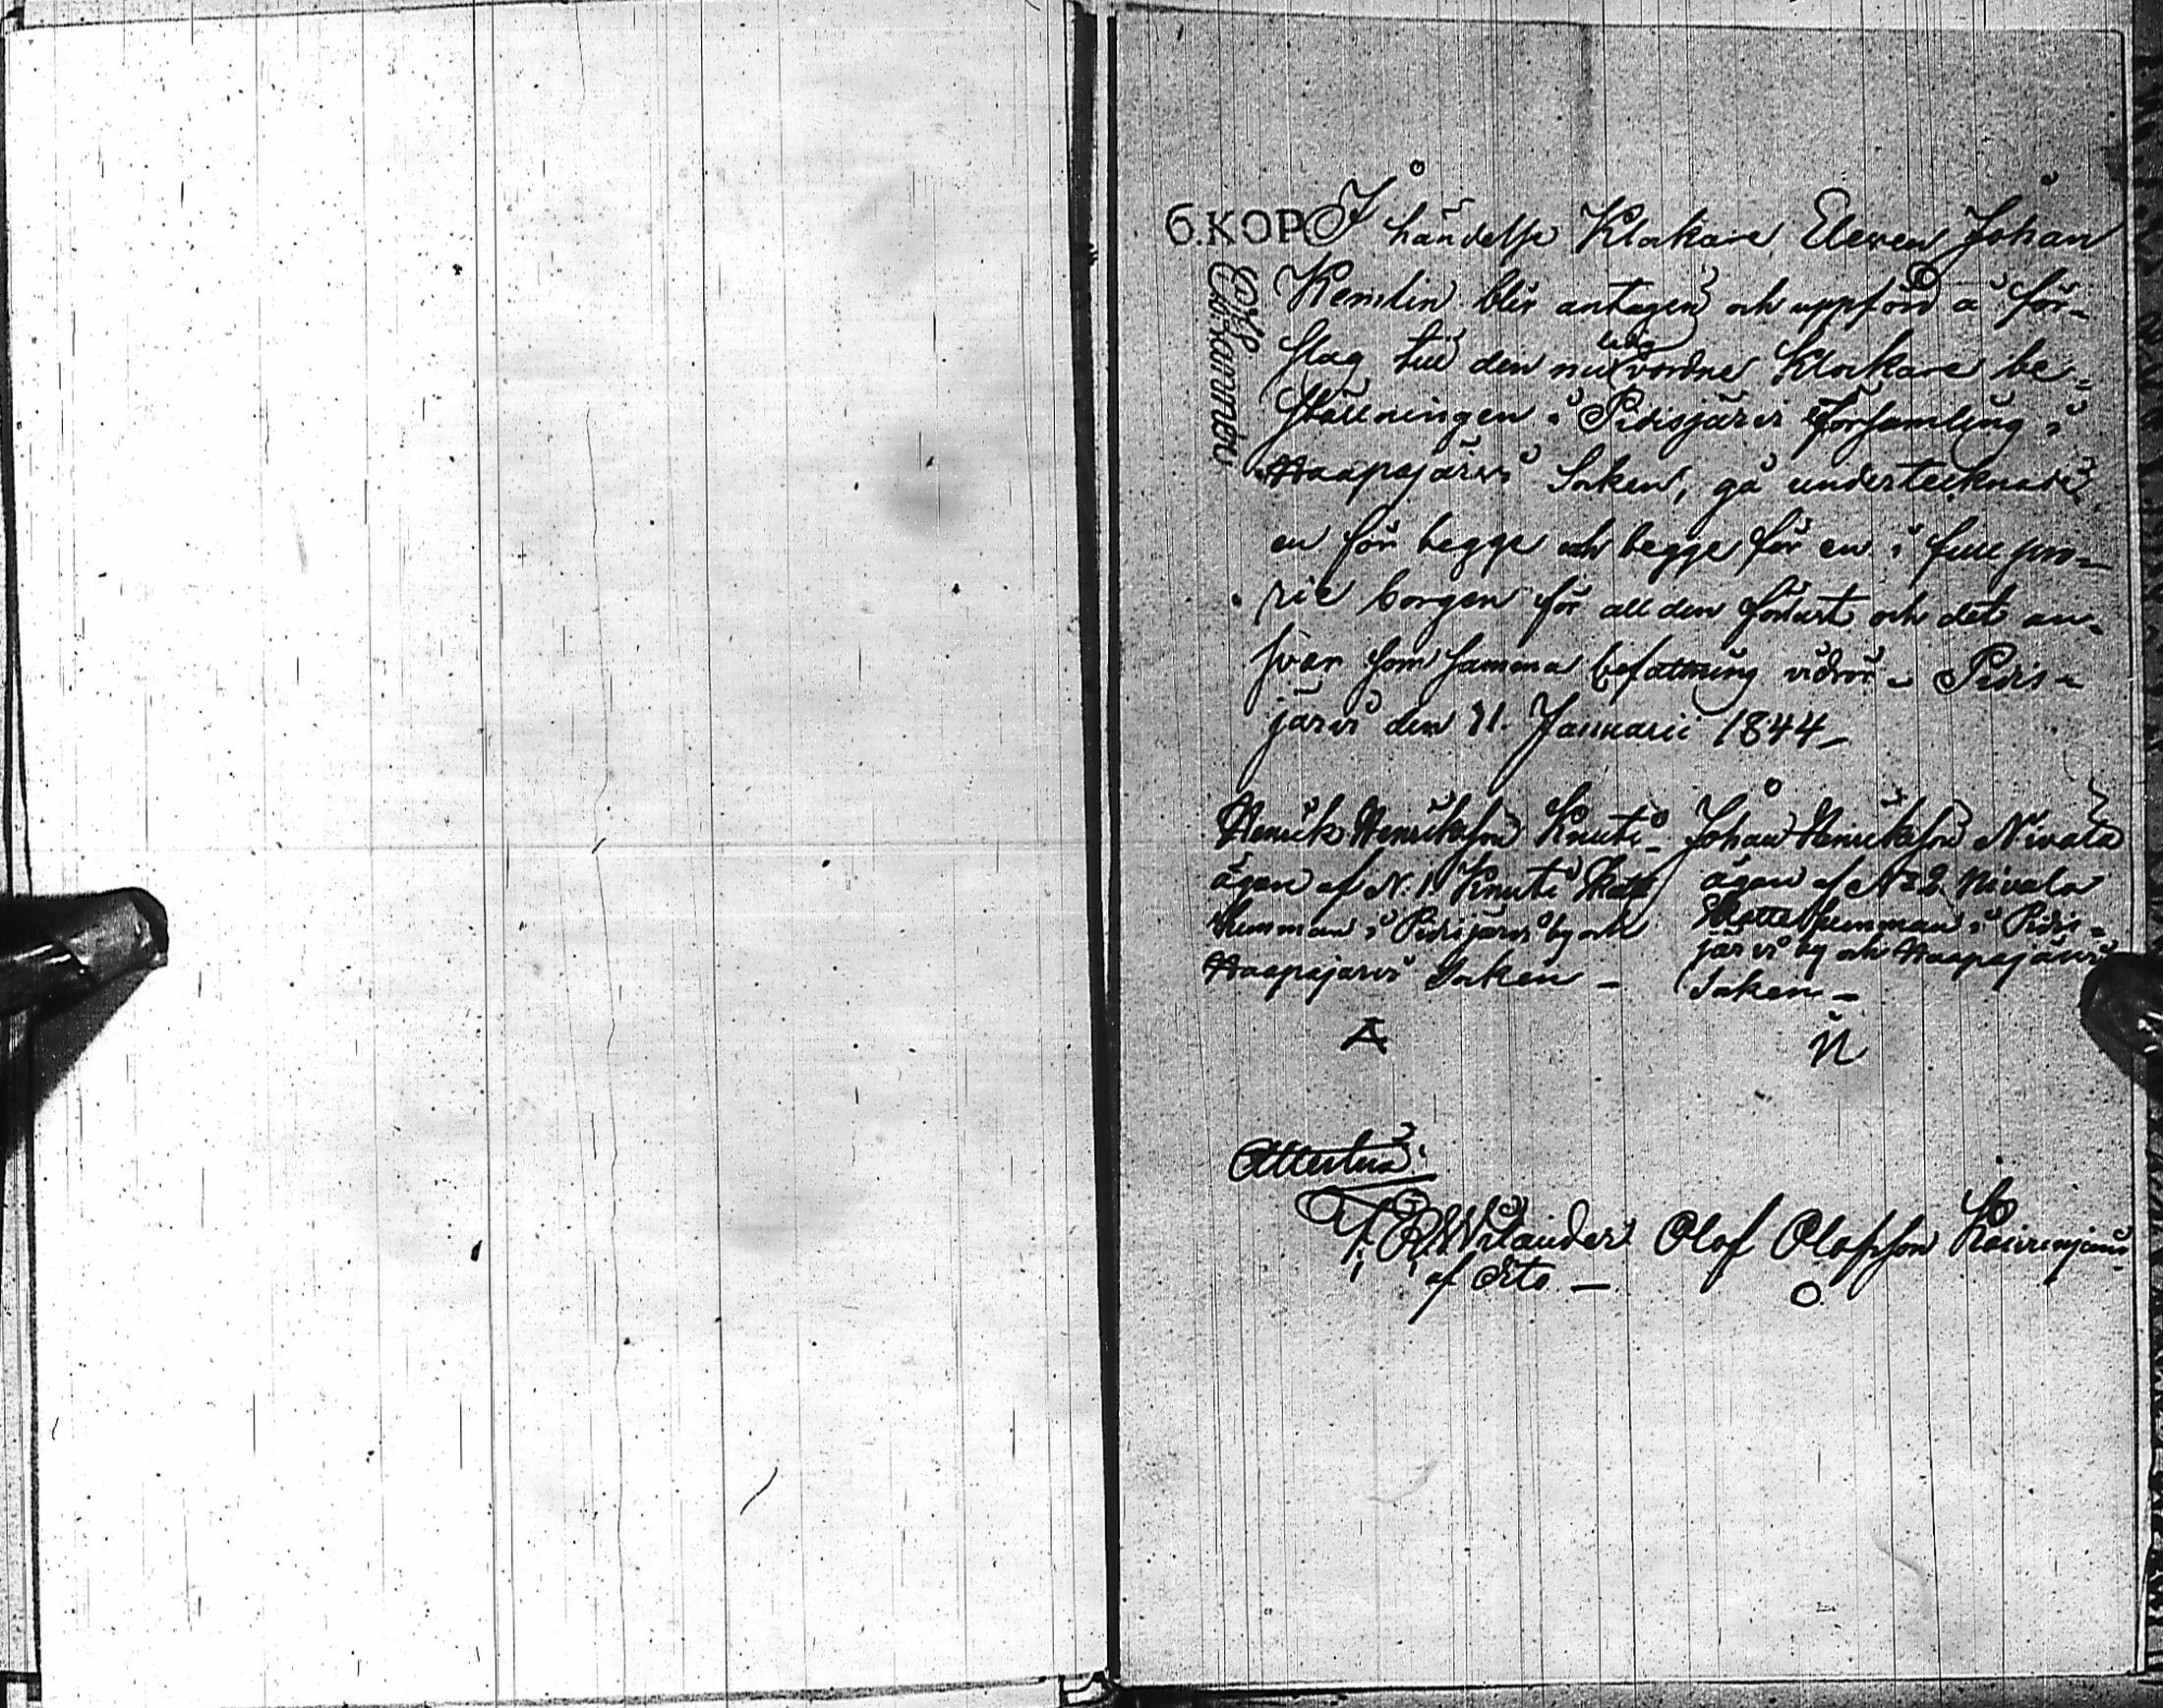 6.KOP
I händelse Klockare Eleven Johan
Kemlin blir antagen och uppförd å för-
slag till den nu ledig vordne Klockare be-
ställningen i Pidisjärvi Församling i
Haapajärvi Socken, gå undertecknade
en för begge och begge för en i full pro-
prie borgen för all den förlust och det an-
svar som samma befattning vidrör - Pidis-
järvi den 31. Januarii 1844 -
Henrik Henriksson Knuti -
ägare af N. 1. Knuti Skatte
hemman i Pidisjärvi by och
Haapajärvi Socken -
Johan Henriksson Nivala
ägare af No 2 Nivala
Skatte hemman i Pidis-
järvi by och Haapajärvi
Socken -
N
Attestera:
Wilander
Olof Olofsson
O